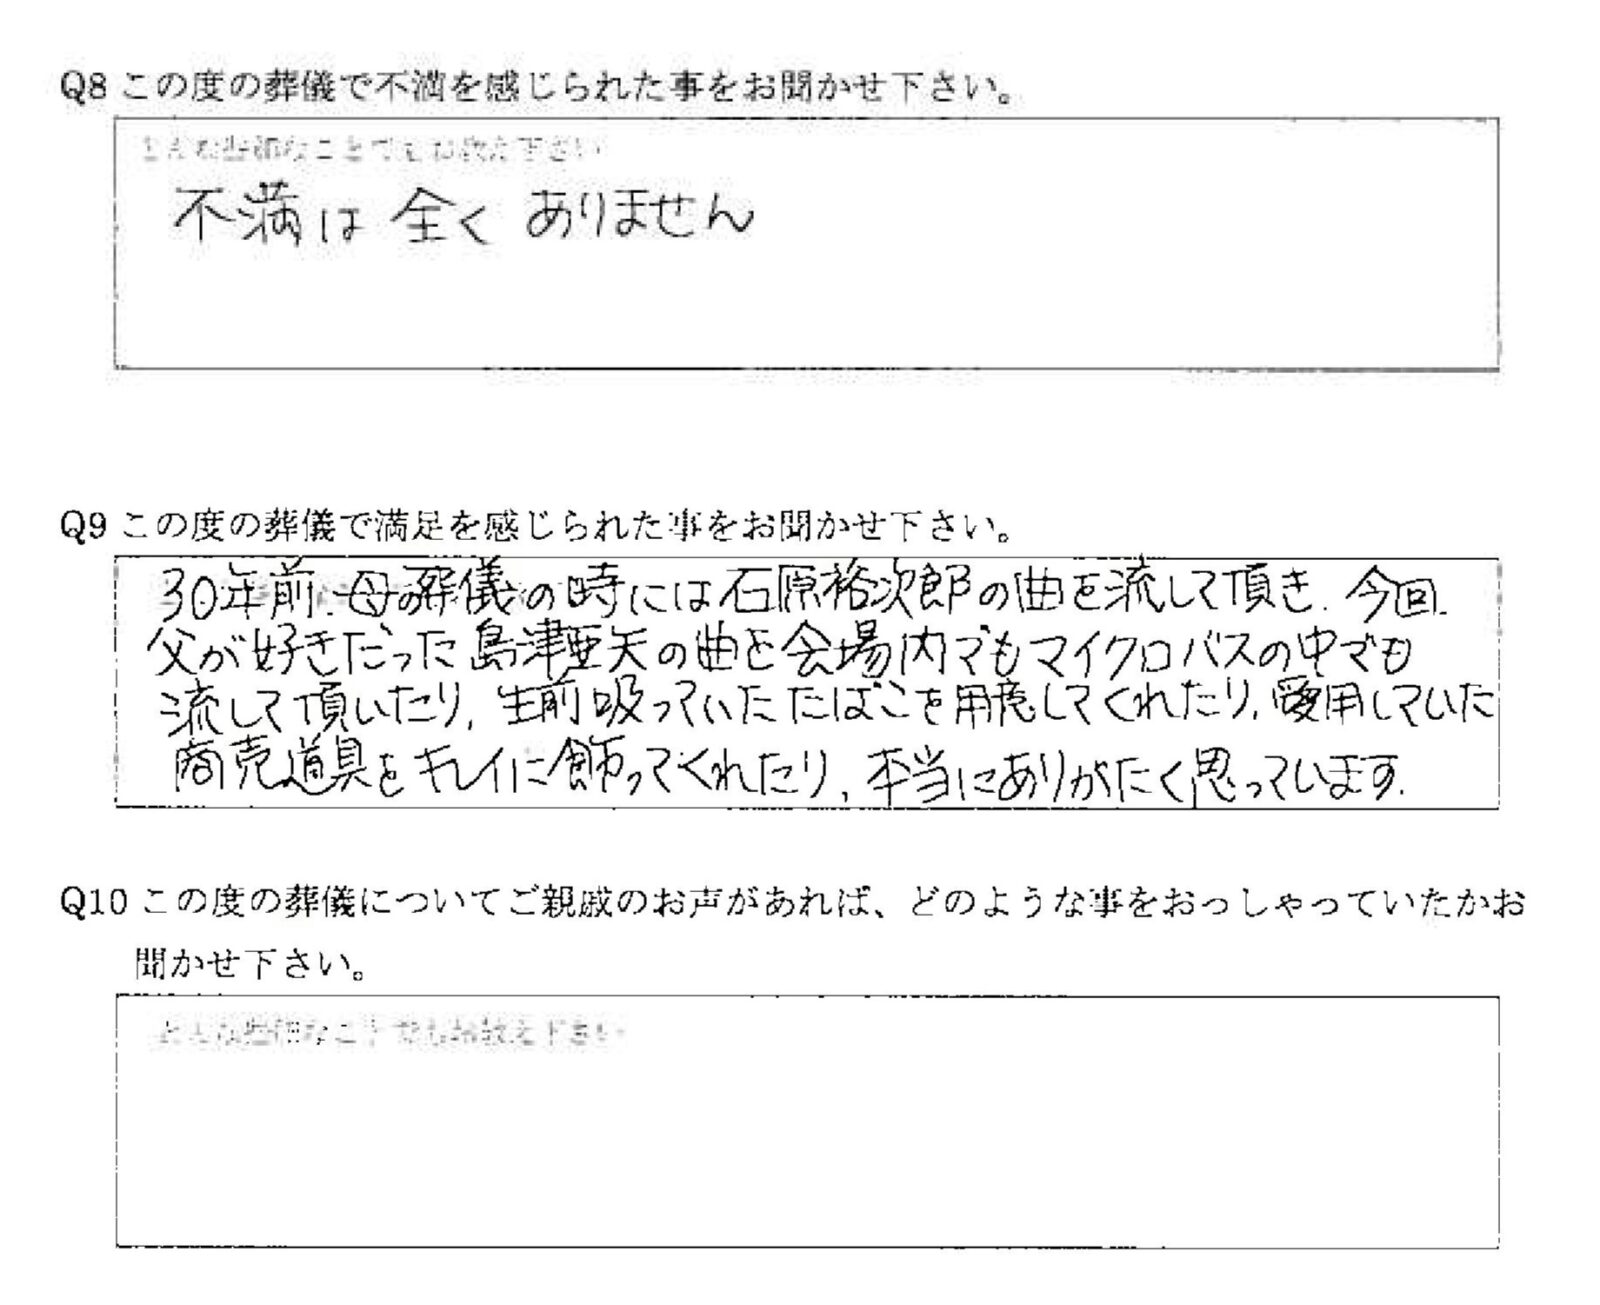 Q8 この度の葬儀で不満を感じられた事をお聞かせ下さい。
どんな些細なことでもお教え下さい
不満は 全く ありません
Q9 この度の葬儀で満足を感じられた事をお聞かせ下さい。
30年前、母の葬儀の時には石原裕次郎の曲を流して頂き、今回、
父が好きだった島津亜矢の曲を会場内でもマイクロバスの中でも
流して頂いたり、生前吸っていたたばこを用意してくれたり、愛用していた
商売道具をキレイに飾ってくれたり、本当にありがたく思っています。
Q10 この度の葬儀についてご親戚のお声があれば、どのような事をおっしゃっていたかお
聞かせ下さい。
どんな些細なことでもお教え下さい